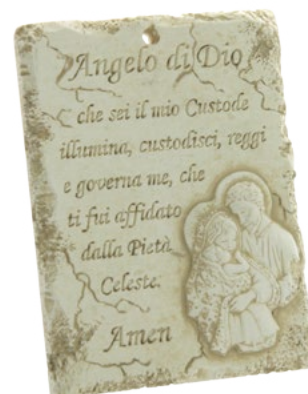 Angelo di Dio
che sei il mio Custode
illumina, custodisci, reggi
e governa me, che
ti fui affidato
dalla Pietà
Celeste.
Amen